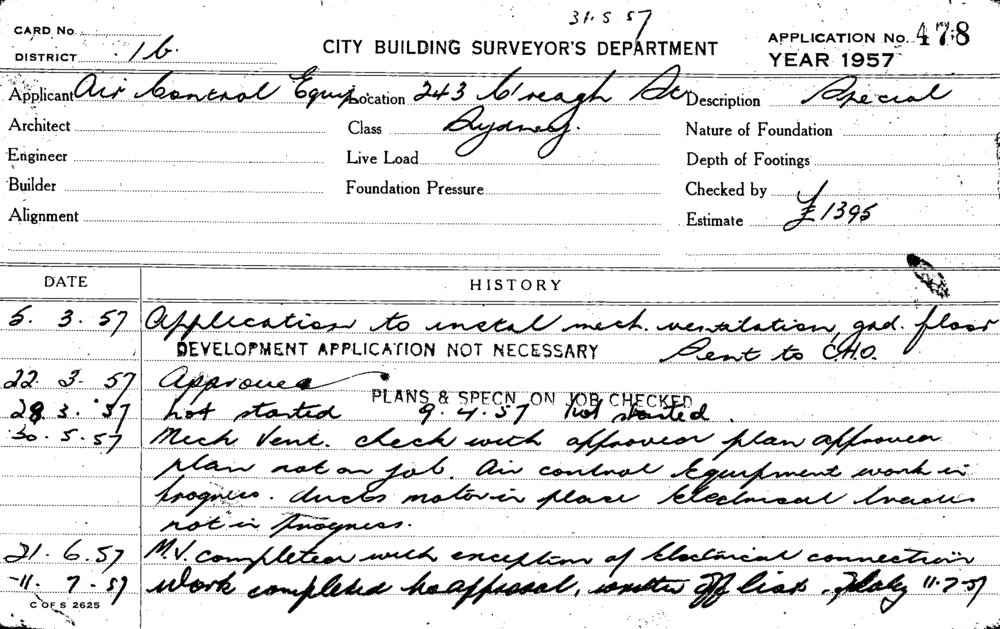 31.5.57
CARD No.
CITY BUILDING SURVEYOR'S DEPARTMENT
APPLICATION No. 478
DISTRICT 16.
YEAR 1957
Applicant Air Control Equip. Location 243 C'reagh St Description Special
Architect Class Sydney. Nature of Foundation
Engineer Live Load Depth of Footings
Builder Foundation Pressure Checked by
Alignment Estimate £1395
DATE HISTORY
5. 3. 57 Application to instal mech. ventilation, gnd. floor
DEVELOPMENT APPLICATION NOT NECESSARY Sent to C.H.O.
22. 3. 57 Approved
PLANS & SPECN ON JOB CHECKED
28 3. 57 not started 9.4.57 not started.
30.5.57 Mech Vent. check with approved plan approved
plan not on job. Air control Equipment work in
progress. ducts motor in place Electrical
not in progress.
21.6.57 M.V. completed with exception of Electrical connection
11.7.57 Work completed to approval, written off list. 11-7-57
C OF S 2625